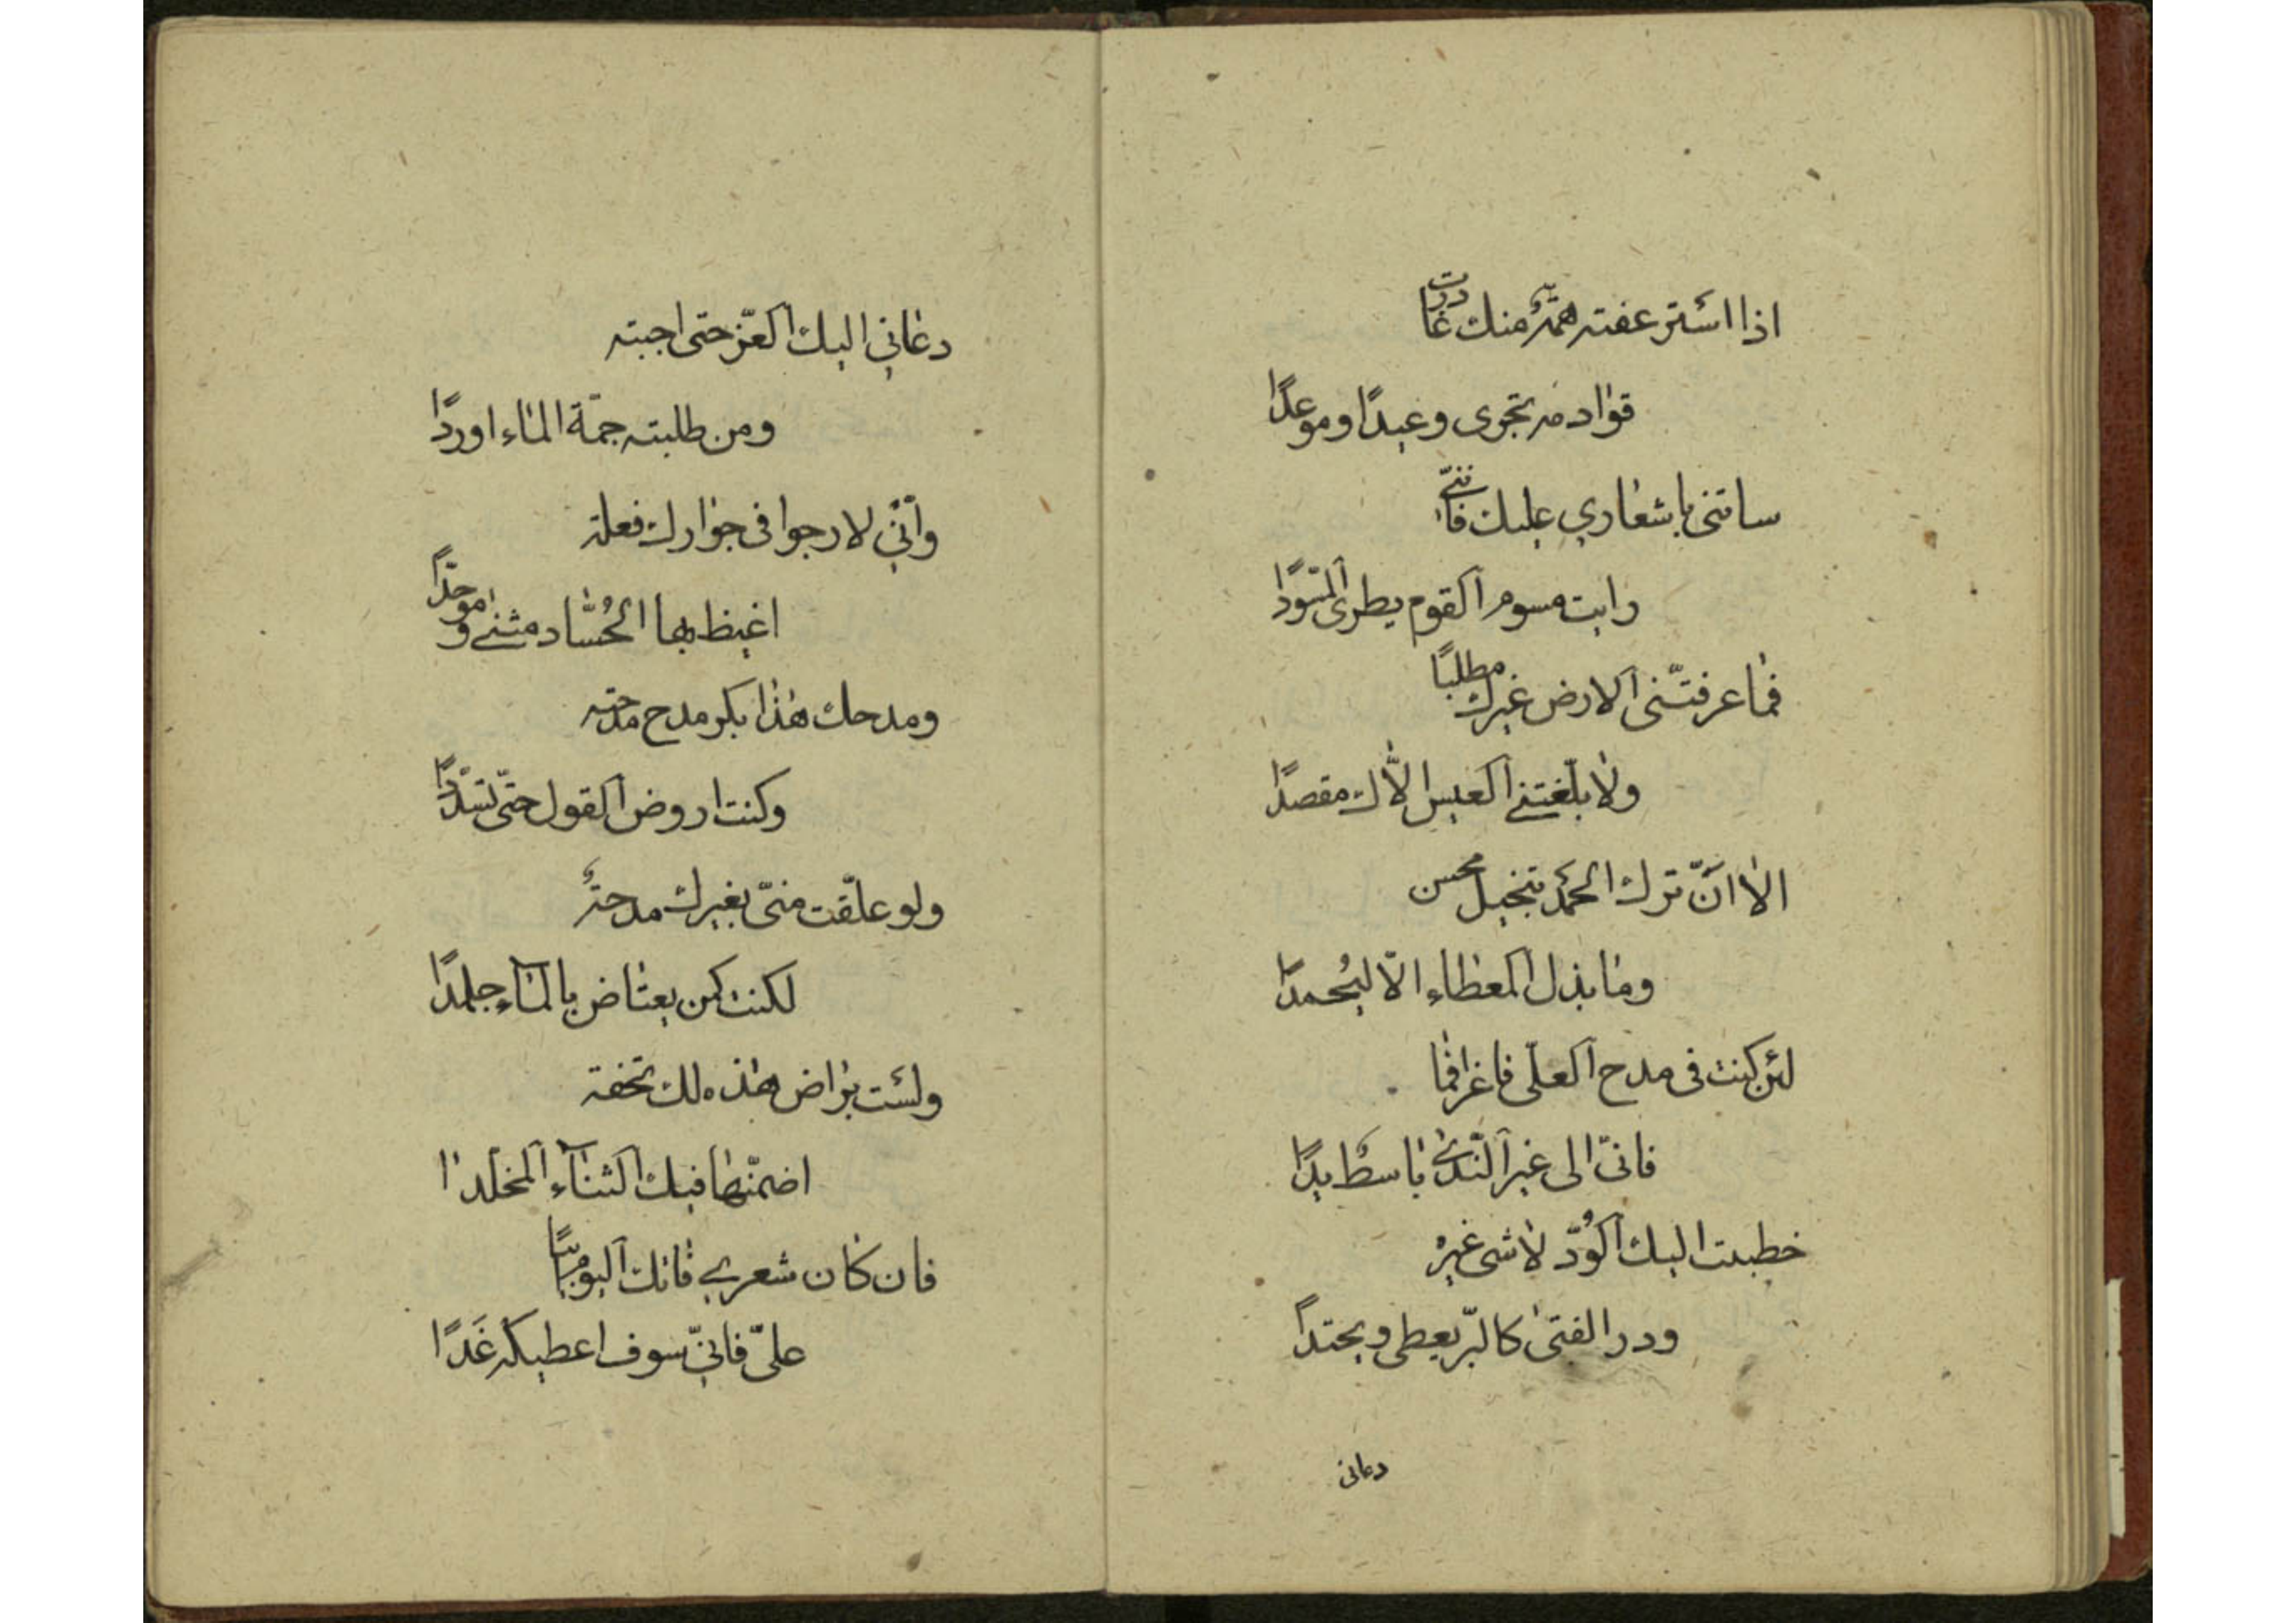 اذا استرعفته همّةٌ منك غادرت
قوادمه تجرى وعيدًا وموعدًا
ساثنى باشعاري عليك فانّنى
رايت مسوم القوم يطرى المسوّدا
فما عرفتنى الارض غيرك مطلبًا
ولا بلّغتنى العيس الّاك مقصدًا
الا انّ ترك الحمد تبخيل محسن
وما بذل المعطاء الّا ليُحمدا
لئن كنت فى مدح العلى فاغرا فما
فانّى الى غير النّدى باسطٌ يدًا
خطبت اليك الوُدّ لا شى غيره
وود الفتى كالبّر يعطى ويجتدا
دعانى
دعاني اليك العزّ حتى اجبته
ومن طلبته جمّة الماء اوردًا
وانّي لارجوا فى جوارك فعلة
اغيظ بها الحُسّاد مثنى وموحدًا
ومدحك هذا بكر مدح مدحته
وكنت اروض القول حتّى تسدّدًا
ولو علّقت منّى بغيرك مدحةٌ
لكنت كمن يعتاض بالمآء جلمدًا
ولست براض هذه لك تحفة
اضمّنها فيك الثنآء المخلّدا
فان كان شعري فاتك اليوم آبيًا
علىّ فانّي سوف اعطيكه غَدًا